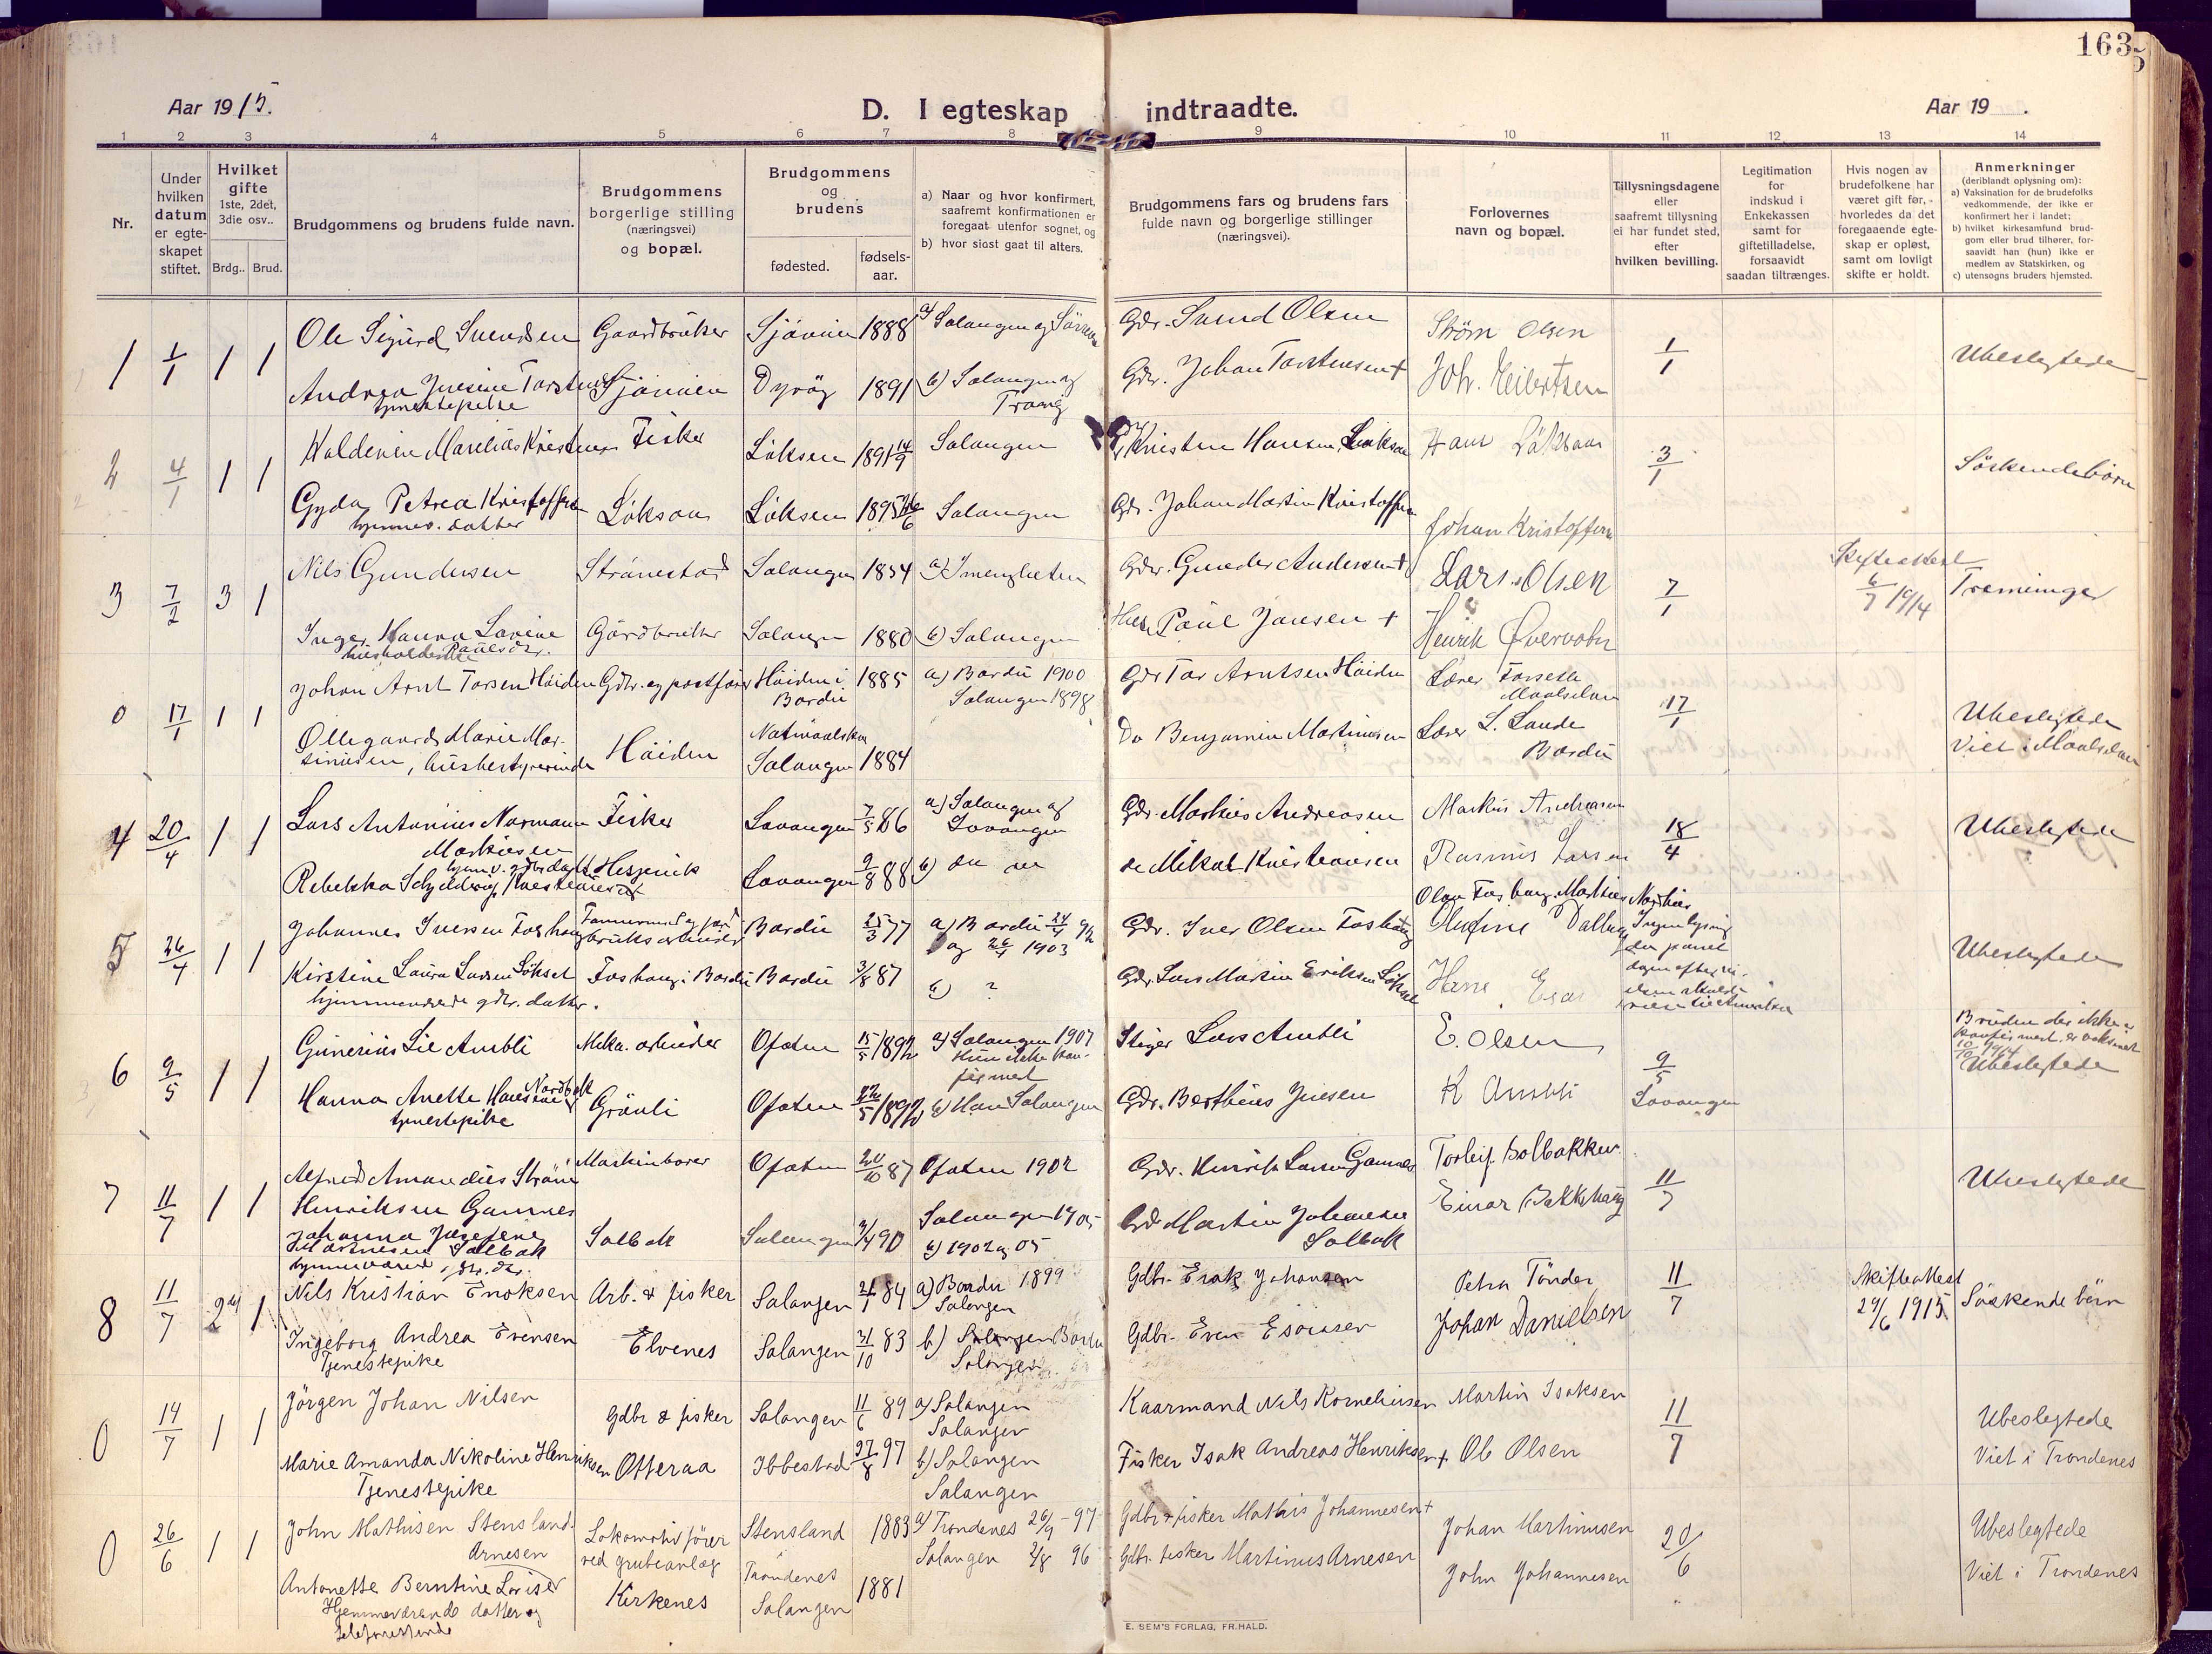 163
Aar 1915.
D. I egteskap indtraadte.
Aar 19 .
1 2 3 4 5 6 7 8 9 10 11 12 13 14
Nr.
Under hvilken datum er egteskapet stiftet.
Hvilket gifte 1ste, 2det, 3die osv..
Brdg.. Brud.
Brudgommens og brudens fulde navn.
Brudgommens borgerlige stilling (næringsvei) og bopæl.
Brudgommens og brudens
fødested.
fødsels-aar.
a) Naar og hvor konfirmert, saafremt konfirmationen er foregaat utenfor sognet, og
b) hvor sidst gaat til alters.
Brudgommens fars og brudens fars fulde navn og borgerlige stillinger (næringsvei).
Forlovernes navn og bopæl.
Tillysningsdagene eller saafremt tillysning ei har fundet sted, efter hvilken bevilling.
Legitimation for indskud i Enkekassen samt for giftetilladelse, forsaavidt saadan tiltrænges.
Hvis nogen av brudefolkene har været gift før, hvorledes da det foregaaende egteskap er opløst, samt om lovligt skifte er holdt.
Anmerkninger
(deriblandt oplysning om):
a) Vaksination for de brudefolks vedkommende, der ikke er konfirmert her i landet;
b) hvilket kirkesamfund brudgom eller brud tilhører, forsaavidt han (hun) ikke er medlem av Statskirken, og
c) utensogns bruders hjemsted.
1 1/1 1 1 Ole Sigurd Svendsen Gaardbruker Sjøvien 1888 a) Salangen og Gdr. Svend Olsen Strøm Olsen 1/1 Ubeslegtede
Andrea Jensine Torstensen Sjøvien Dyrøy 1891 b) Salangen og Gdr. Johan Torstensen + Joh. Meibertsen
tjenestepike
2 4/1 1 1 Fisker Løksen 1891 14/9 Salangen Kristen Hansen Løksen Hans Løksaas 3/1 Søskendebørn
Gyda Petrea Kristoffersen Løksen 1895 26/6 Salangen Gdr. Johan Martin Kristoffersen Johan Kristoffersen
hjemmev. datter
3 7/2 3 1 Nils Gundersen Salangen 1854 a) I menigheten Gdr. Gunder Andersen + Lars Olsen 7/1 Skifteattest 6/7 1914 Tremenninger
Inger Hanna Lavine Paulsdr. Gårdbruker Salangen 1880 b) Salangen Paul Jansen + Henrik
0 17/1 1 1 Johan Arnt Torsen Høiden Gdbr. og postfører Høiden i Bardu 1885 a) Bardu 1900 Gdr Tor Arntsen Høiden Lærer 17/1 Ubeslegtede
Salangen 1898
Øllegaard Marie Martinussen, husbestyrerinde Høiden Salangen 1884 Do Benjamin Martinussen Lærer L. Lande Bardu Viet i Maalselven
4 20/4 1 1 Lars Antonius Normann Markussen Fisker Lavangen 7/5 86 a) Salangen og Lavangen Gdr. Markus Andreasen Markus Andreasen 18/4 Ubeslegtede
Rebekka Lavangen 9/8 88 b) do do do Mikal Kristiansen Rasmus Larsen
5 26/4 1 1 Johannes Iversen Foshaug Bardu 25/3 77 a) Bardu 24/4 92 Gdr. Iver Olsen Foshaug Ubeslegtede
og 26/4 1903
Kirstine Laura Larsen Løkset Foshaug i Bardu Bardu 3/8 87 b) ? Gdr. Lars Martin Eriksen Løkset
hjemmeværende gdbr. datter.
6 9/5 1 1 Gunerius Lie Ambli Mek. arbeider Ofoten 15/5 1892 a) Salangen 1907 Stiger Lars Ambli E. Olsen 9/5 Lavangen
Hun ikke konfirmert
Hanna Anette Hansine Nordbakk Grønli Ofoten 22/5 1892 b) Han Salangen Gdr. Berthius Jensen K Ambli Ubeslegtede
tjenestepike
7 11/7 1 1 Alfred Amandus Strøm Henriksen Gamnes Maskinborer Ofoten 20/10 87 Ofoten 1902 Gdr. Henrik Larsen Gamnes Torleif Solbakken 11/7 Ubeslegtede
Johanna Josefine Martinesen Solbak Solbak Salangen 3/4 90 Salangen 1905 Gdr Martin Johansen Solbakk Einar Bakkehaug
b) 1902 og 05
8 11/7 2 1 Nils Kristian Enoksen Arb. & fisker Salangen 21/1 84 a) Bardu 1899 Salangen Gdbr. Enok Johansen Petra Tønder 11/7 Skifteattest 29/6 1915 Søskendebørn
Ingeborg Andrea Evensen Elvenes Salangen 31/10 83 b) Salangen Bardu Salangen Gdbr. Even Johan Danielsen
Tjenestepike
0 14/7 1 1 Jørgen Johan Nilsen Gdbr & fisker Salangen 11/6 89 a) Salangen Salangen Kaarmand Nils Kornelinsen Martin Isaksen 11/7 Ubeslegtede
Marie Amanda Nikoline Henriksen Otteraa Ibbestad 27/8 97 b) Salangen Salangen Fisker Isak Andreas Henriksen + Ole Olsen Viet i Trondenes
Tjenestepike
0 26/6 1 1 John Mathisen Stensland Lokomotivfører ved grubeanlæg Stensland Trondenes 1883 a) Trondenes 26/9 - 97 Gdbr & fisker Mathis Johannesen + Johan Martinusen 20/6 Ubeslegtede
Antonette Berntine Lovise Arnesen Kirkenes Salangen 1881 Salangen 2/8 96 Gdbr. fisker Martinus Arnesen John Johannesen Viet i Trondenes
Hjemmeværende datter og
E. SEM'S FORLAG, FR.HALD.